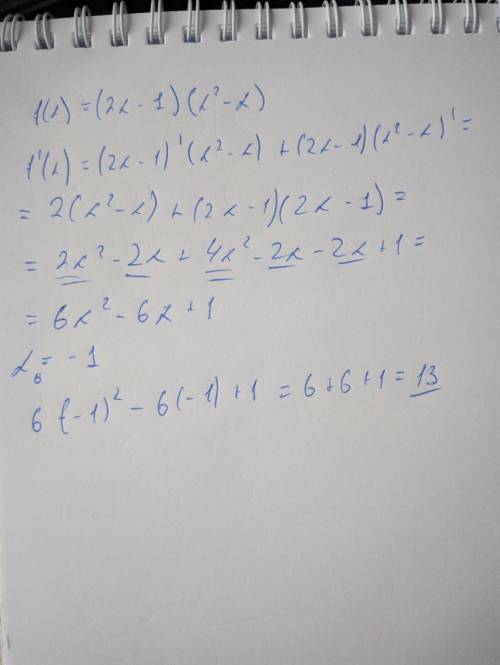 f(x) = (2x - 1)(x² - x)
f'(x) = (2x - 1)'(x² - x) + (2x - 1)(x² - x)' =
= 2(x² - x) + (2x - 1)(2x - 1) =
= 2x² - 2x + 4x² - 2x - 2x + 1 =
= 6x² - 6x + 1
x₀ = -1
6(-1)² - 6(-1) + 1 = 6 + 6 + 1 = 13